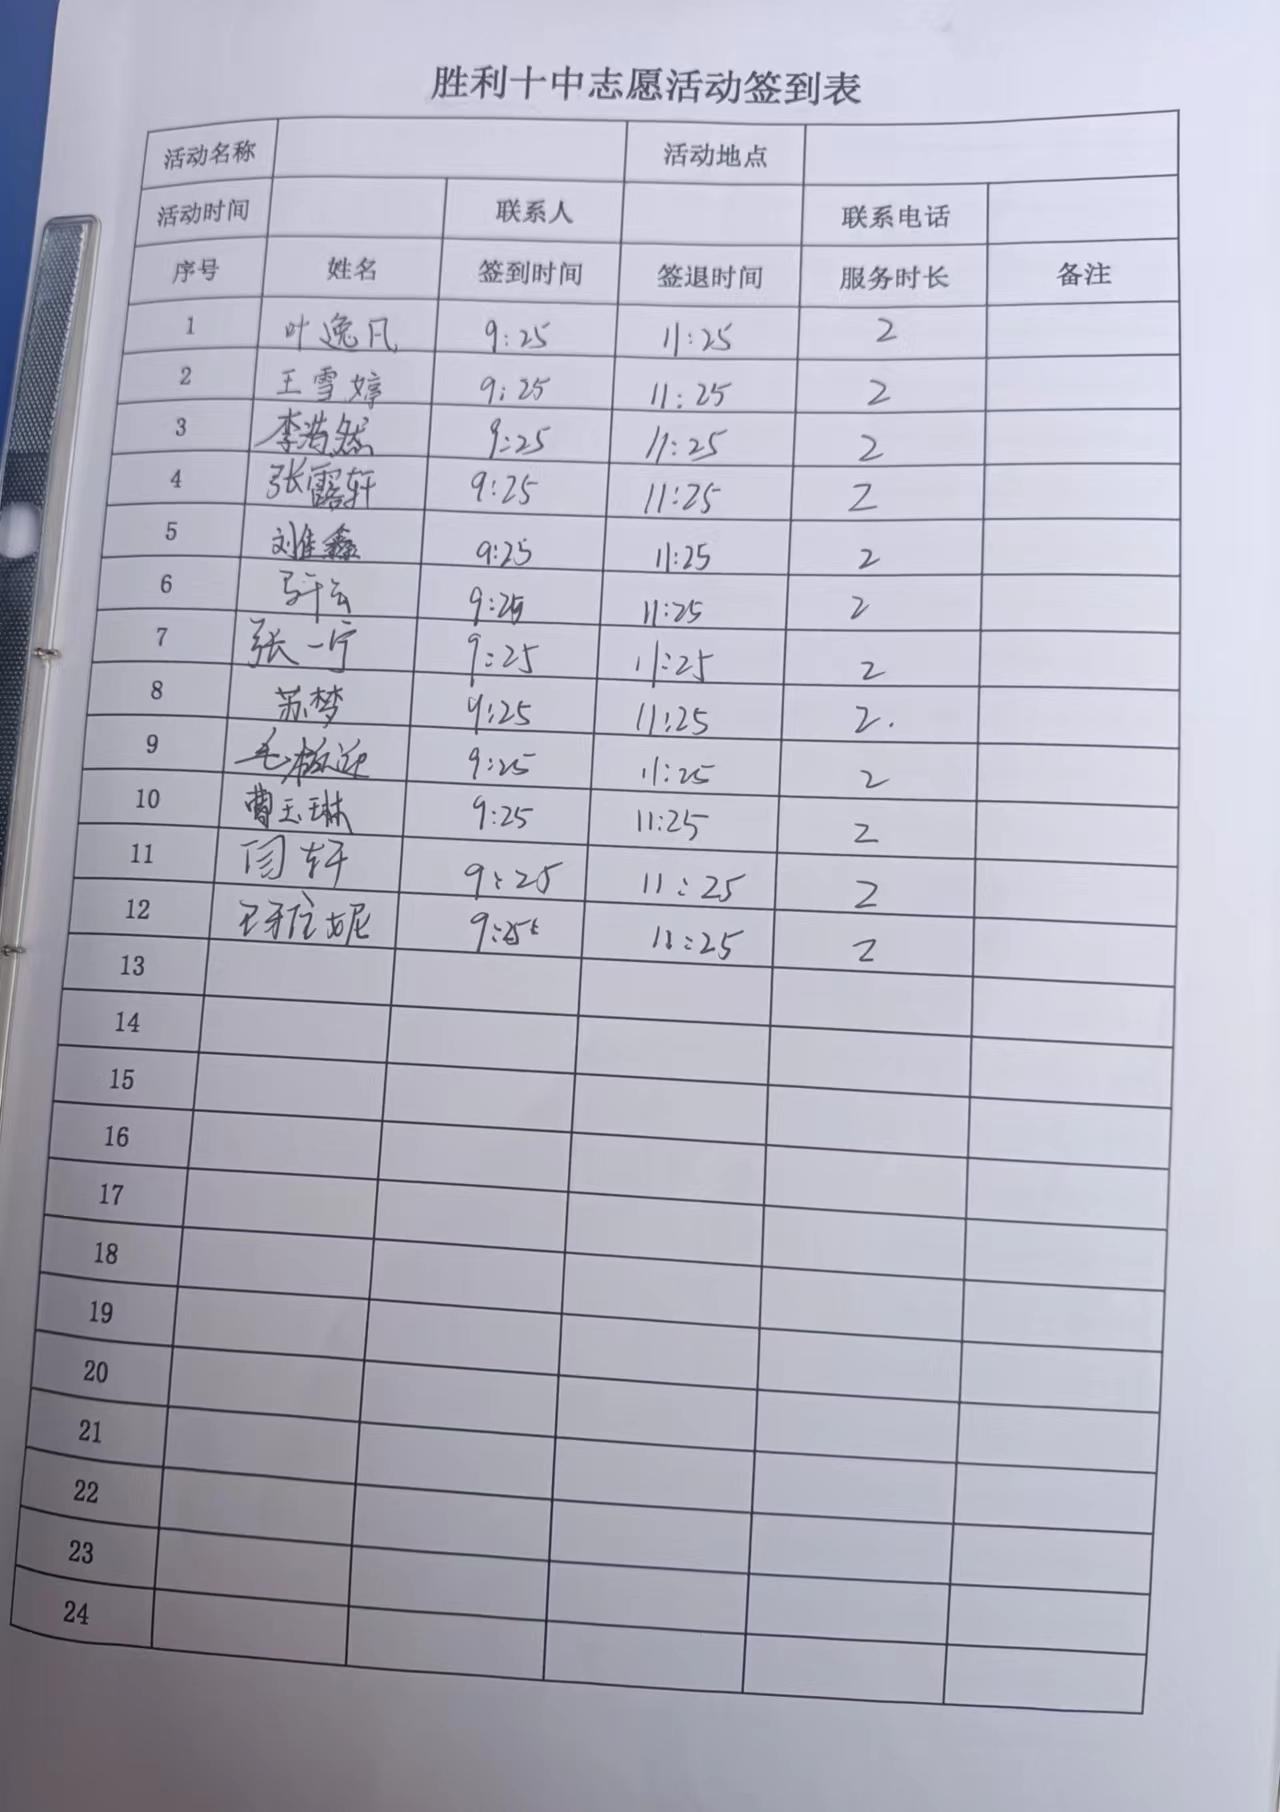 胜利十中志愿活动签到表
活动名称 活动地点
活动时间 联系人 联系电话
序号 姓名 签到时间 签退时间 服务时长 备注
1 叶逸凡 9:25 11:25 2
2 王雪婷 9:25 11:25 2
3 李浩然 9:25 11:25 2
4 张露轩 9:25 11:25 2
5 刘佳鑫 9:25 11:25 2
6 9:25 11:25 2
7 张一宁 9:25 11:25 2
8 苏梦 9:25 11:25 2.
9 9:25 11:25 2
10 曹玉琳 9:25 11:25 2
11 闫轩 9:25 11:25 2
12 9:25 11:25 2
13
14
15
16
17
18
19
20
21
22
23
24